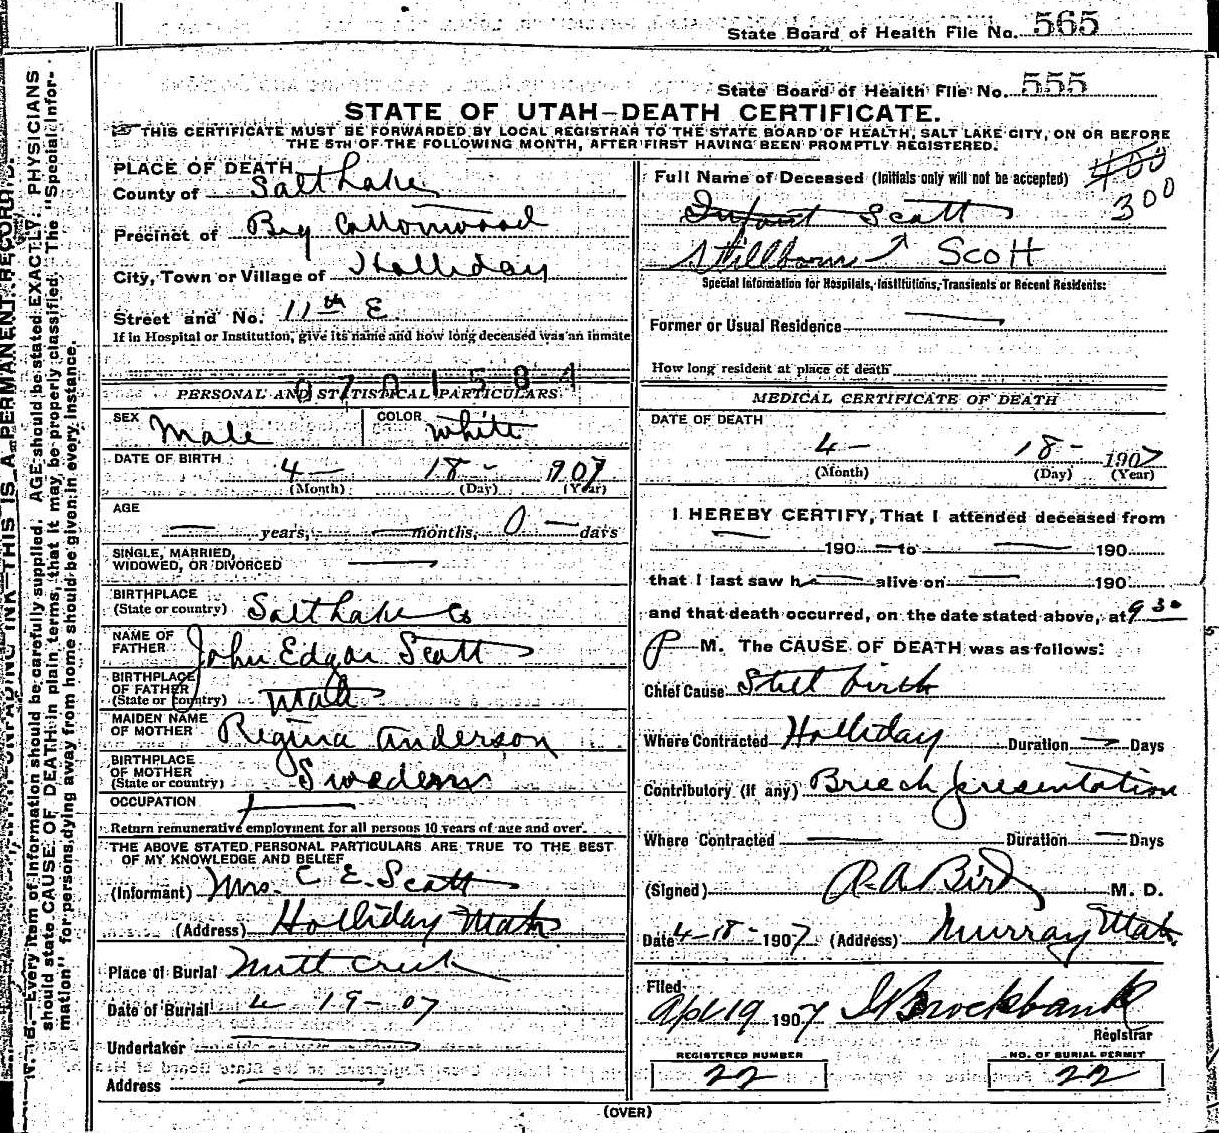 State Board of Health File No. 565
State Board of Health File No. 555
STATE OF UTAH—DEATH CERTIFICATE.
THIS CERTIFICATE MUST BE FORWARDED BY LOCAL REGISTRAR TO THE STATE BOARD OF HEALTH, SALT LAKE CITY, ON OR BEFORE
THE 5TH OF THE FOLLOWING MONTH, AFTER FIRST HAVING BEEN PROMPTLY REGISTERED.
PLACE OF DEATH
County of Salt Lake
Precinct of Big Cottonwood
City, Town or Village of Holliday
Street and No. 11th E
If in Hospital or Institution, give its name and how long deceased was an inmate
0701584
PERSONAL AND STATISTICAL PARTICULARS
SEX Male COLOR White
DATE OF BIRTH 4— 18- 1907
(Month) (Day) (Year)
AGE
— years, — months, 0 — days
SINGLE, MARRIED,
WIDOWED, OR DIVORCED
BIRTHPLACE
(State or country) Salt Lake Co
NAME OF
FATHER John Edgar Scott
BIRTHPLACE
OF FATHER
(State or country) Utah
MAIDEN NAME
OF MOTHER Regina Anderson
BIRTHPLACE
OF MOTHER
(State or country) Sweden
OCCUPATION
Return remunerative employment for all persons 10 years of age and over.
THE ABOVE STATED PERSONAL PARTICULARS ARE TRUE TO THE BEST
OF MY KNOWLEDGE AND BELIEF
(Informant) Mrs. C E. Scott
(Address) Holliday Utah
Place of Burial Mill Creek
Date of Burial 4 19-07
Undertaker
Address
Full Name of Deceased (Initials only will not be accepted) 400
300
Infant Scott
Stillborn Scott
Special Information for Hospitals, Institutions, Transients or Recent Residents:
Former or Usual Residence
How long resident at place of death
MEDICAL CERTIFICATE OF DEATH
DATE OF DEATH
4— 18- 1907
(Month) (Day) (Year)
I HEREBY CERTIFY, That I attended deceased from
— 190 — to — 190
that I last saw h— alive on — 190
and that death occurred, on the date stated above, at 9 30
P M. The CAUSE OF DEATH was as follows:
Chief Cause Still birth
Where Contracted Holliday Duration — Days
Contributory (if any) Breech presentation
Where Contracted — Duration — Days
(Signed) R. A. Bird M. D.
Date 4-18-1907 (Address) Murray Utah
Filed
Apl 19 1907 Brockbank
Registrar
REGISTERED NUMBER
22
NO. OF BURIAL PERMIT
22
(OVER)
N. B.—Every item of information should be carefully supplied. AGE should be stated EXACTLY. PHYSICIANS
should state CAUSE OF DEATH in plain terms, that it may be properly classified. The "Special Infor-
mation" for persons dying away from home should be given in every instance.
UNFADING INK—THIS IS A PERMANENT RECORD.